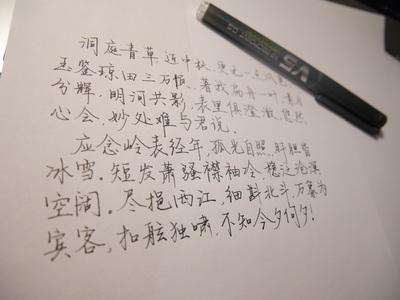 洞庭青草,近中秋,更无一点风色。
玉鉴琼田三万顷,著我扁舟一叶,素月
分辉,明河共影,表里俱澄澈,悠然
心会,妙处难与君说。
应念岭表经年,孤光自照,肝胆皆
冰雪.短发萧骚襟袖冷,稳泛沧溟
空阔.尽挹西江,细斟北斗,万象为
宾客,扣舷独啸,不知今夕何夕!